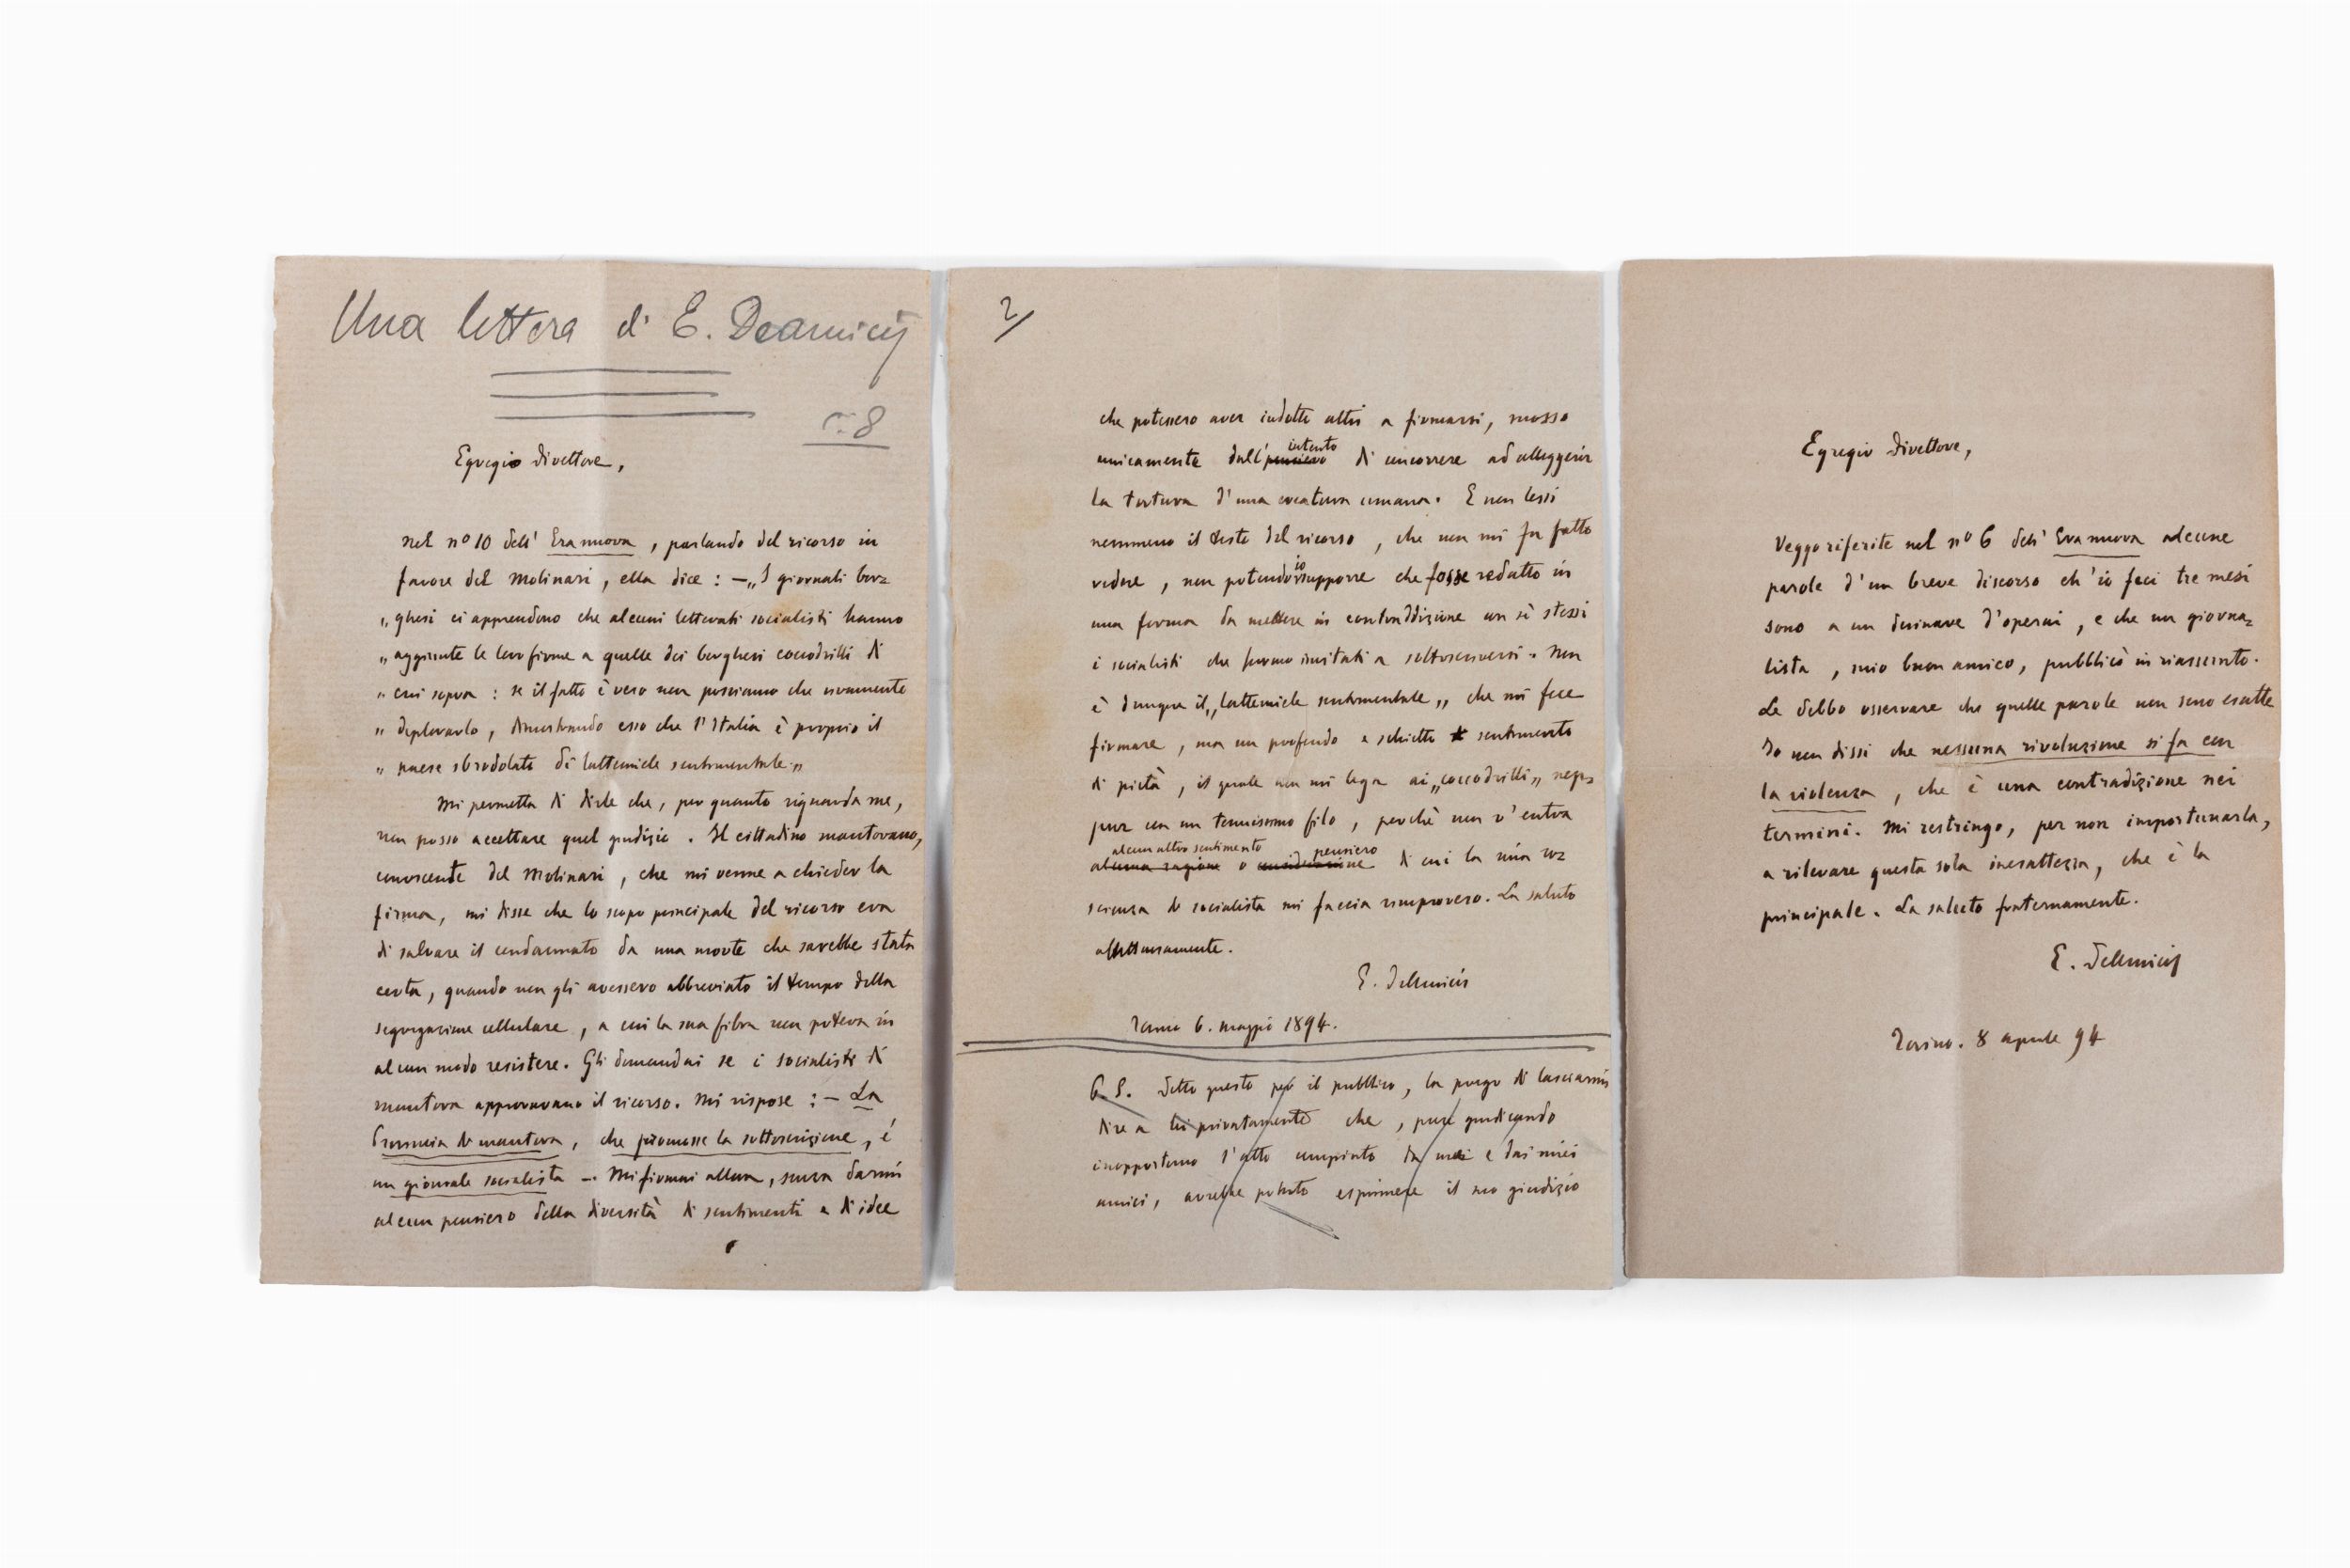 Una lettera di E. Deamicis
n. 8
Egregio direttore,
Nel n° 10 dell' Era nuova, parlando del ricorso in
favore del Molinari, ella dice : — „I giornali bor=
„ ghesi ci apprendono che alcuni letterati socialisti hanno
„ aggiunte le loro firme a quelle dei borghesi coccodrilli di
„ cui sopra : se il fatto è vero non possiamo che vivamente
„ deplorarlo, dimostrando esso che l'Italia è proprio il
„ paese sbrodolato di lattemiele sentimentale„
Mi permetta di dirle che, per quanto riguarda me,
non posso accettare quel giudizio. Il cittadino mantovano,
conoscente del Molinari, che mi venne a chieder la
firma, mi disse che lo scopo principale del ricorso era
di salvare il condannato da una morte che sarebbe stata
certa, quando non gli avessero abbreviato il tempo della
segregazione cellulare, a cui la sua fibra non poteva in
alcun modo resistere. Gli domandai se i socialisti di
Mantova approvavano il ricorso. Mi rispose : — La
Provincia di Mantova, che promosse la sottoscrizione, è
un giornale socialista —. Mi firmai allora, senza darmi
alcun pensiero della diversità di sentimenti e di idee
2/
che potessero aver indotto altri a firmarsi, mosso
unicamente dall'pensiero intento di concorrere ad alleggerir
la tortura d'una creatura umana. E non lessi
nemmeno il testo del ricorso, che non mi fu fatto
vedere, non potendo io supporre che fosse redatto in
una forma da mettere in contraddizione con sè stessi
i socialisti che furono invitati a sottoscriversi. Non
è dunque il „lattemiele sentimentale„ che mi fece
firmare, ma un profondo e schietto sentimento
di pietà, il quale non mi lega ai „coccodrilli„ nep=
pur con un tenuissimo filo, perchè non v'entra
alcun altro sentimento pensiero
alcuna ragione o considerazione di cui la mia co=
scienza di socialista mi faccia rimprovero. La saluto
affettuosamente.
E. DeAmicis
Torino 6. maggio 1894.
P. S. Detto questo per il pubblico, la prego di lasciarmi
dire a lei privatamente che, pure giudicando
inopportuno l'atto compiuto da me e dai miei
amici, avrebbe potuto esprimere il suo giudizio
Egregio direttore,
Veggo riferite nel n° 6 dell' Era nuova alcune
parole d'un breve discorso ch'io feci tre mesi
sono a un desinare d'operai, e che un giorna=
lista, mio buon amico, pubblicò in riassunto.
Le debbo osservare che quelle parole non sono esatte
Io non dissi che nessuna rivoluzione si fa con
la violenza, che è una contradizione nei
termini. Mi restringo, per non importunarla,
a rilevare questa sola inesattezza, che è la
principale. La saluto fraternamente.
E. DeAmicis
Torino. 8 aprile 94